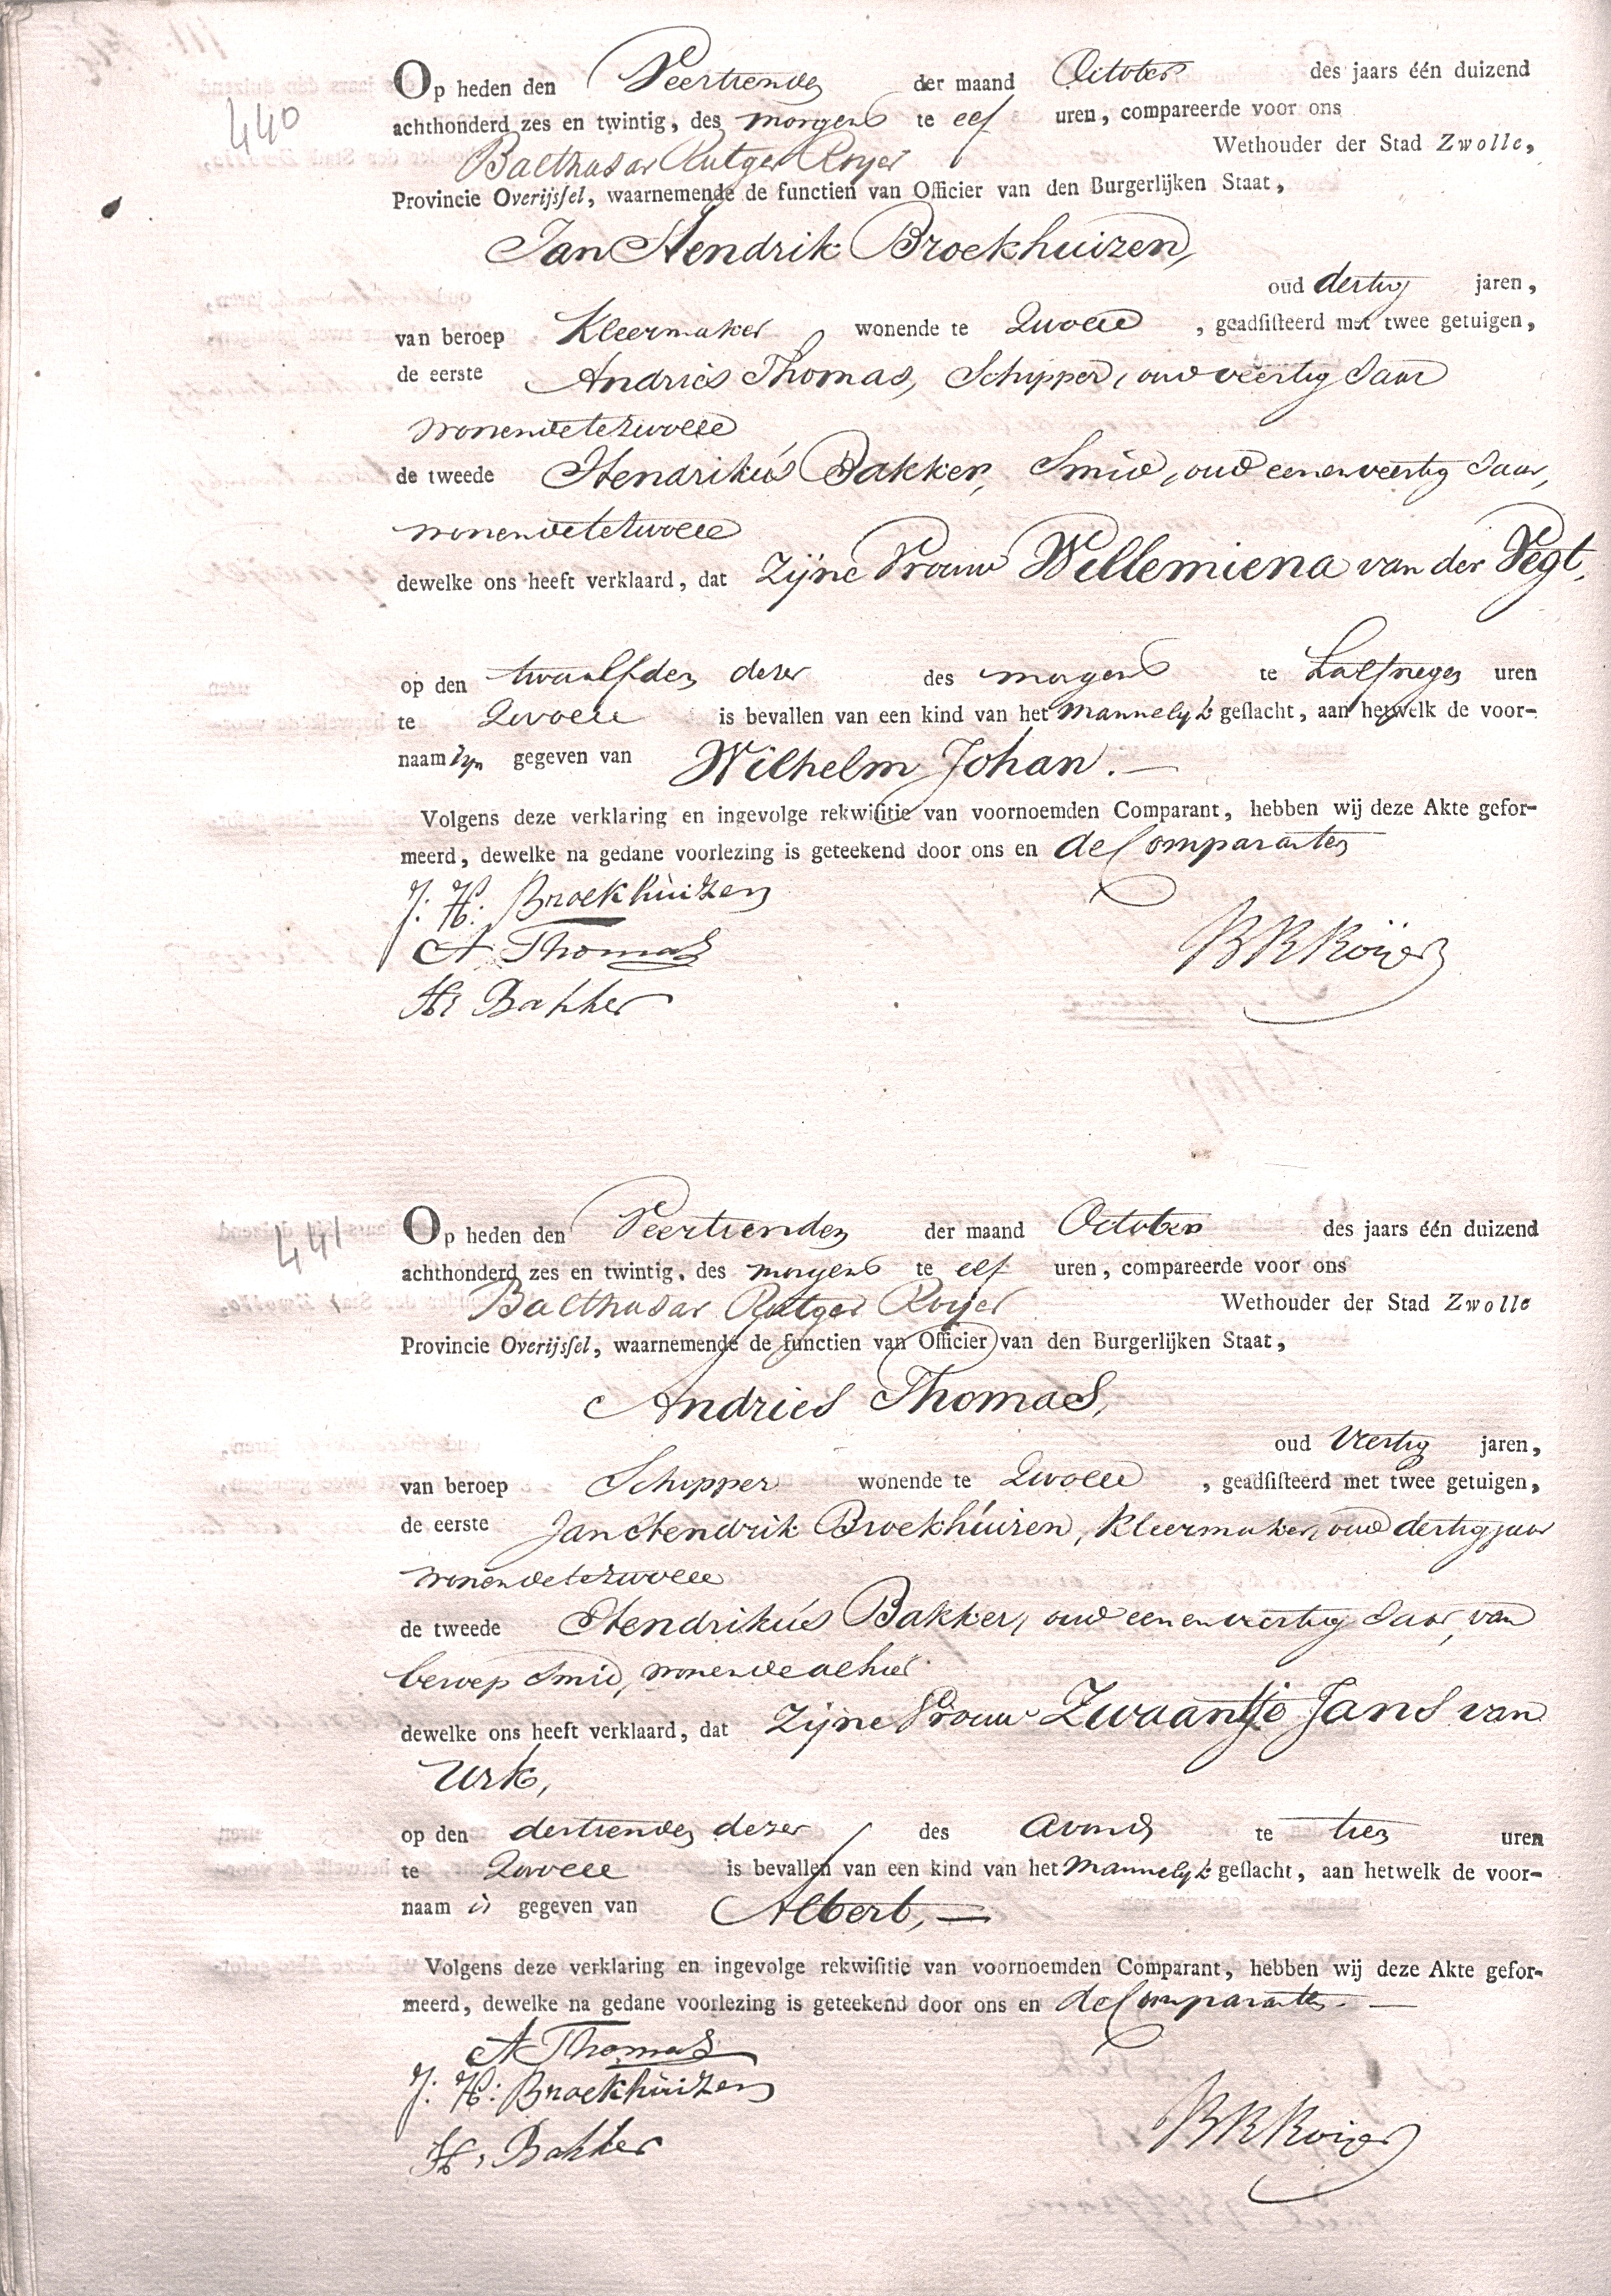 440
Op heden den Veertiende der maand October des jaars één duizend
achthonderd zes en twintig, des morgens te elf uren, compareerde voor ons
Balthasar Rutger Royer Wethouder der Stad Zwolle,
Provincie Overijssel, waarnemende de functien van Officier van den Burgerlijken Staat,
Jan Hendrik Broekhuizen,
oud dertig jaren,
van beroep Kleermaker wonende te Zwolle, geadsisteerd met twee getuigen,
de eerste Andries Thomas, Schipper, oud veertig Jaar
wonende te Zwolle
de tweede Hendrikus Bakker, Smid, oud een en veertig Jaar,
wonende te Zwolle
dewelke ons heeft verklaard, dat Zijne Vrouw Willemiena van der Vegt,
op den twaalfden dezer des morgens te halfnegen uren
te Zwolle is bevallen van een kind van het Mannelyk geslacht, aan hetwelk de voor-
naam zyn gegeven van Wilhelm Johan. —
Volgens deze verklaring en ingevolge rekwisitie van voornoemden Comparant, hebben wij deze Akte gefor-
meerd, dewelke na gedane voorlezing is geteekend door ons en de Comparanten
J: H: Broekhuizen
A Thomas
H Bakker
B R Roÿer
441
Op heden den Veertienden der maand October des jaars één duizend
achthonderd zes en twintig, des morgens te elf uren, compareerde voor ons
Balthasar Rutger Royer Wethouder der Stad Zwolle
Provincie Overijssel, waarnemende de functien van Officier van den Burgerlijken Staat,
Andries Thomas,
oud Veertig jaren,
van beroep Schipper wonende te Zwolle, geadsisteerd met twee getuigen,
de eerste Jan Hendrik Broekhuizen, Kleermaker, oud dertig jaar
wonende te Zwolle
de tweede Hendrikus Bakker, oud een en veertig Jaar, van
beroep Smid, wonende alhier
dewelke ons heeft verklaard, dat Zijne Vrouw Zwaantje Jans van
Urk,
op den dertienden dezer des Avonds te tien uren
te Zwolle is bevallen van een kind van het Mannelyk geslacht, aan hetwelk de voor-
naam is gegeven van Albert, —
Volgens deze verklaring en ingevolge rekwisitie van voornoemden Comparant, hebben wij deze Akte gefor-
meerd, dewelke na gedane voorlezing is geteekend door ons en de Comparanten. —
A Thomas
J: H: Broekhuizen
H, Bakker
B R Roÿer